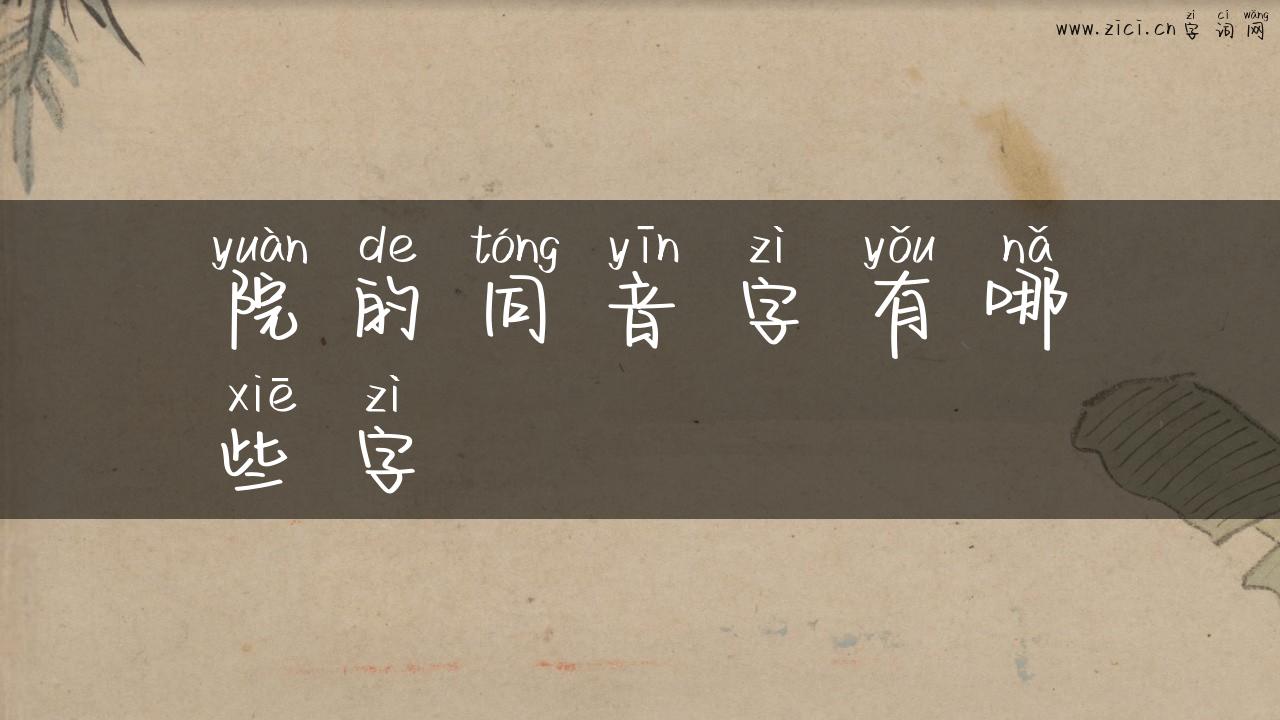 zì cí wǎng
www.zici.cn 字词网
yuàn de tóng yīn zì yǒu nǎ
院的同音字有哪
xiē zì
些字